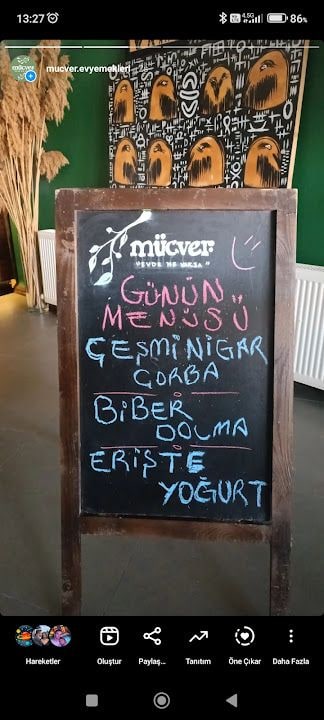 13:27
4.5G
86%
mucver.evyemekleri
mücver
"EVDE NE VARSA"
GÜNÜN
MENÜSÜ
ÇEŞMİNİGAR
ÇORBA
BİBER
DOLMA
ERİŞTE
YOĞURT
Hareketler
Oluştur
Paylaş...
Tanıtım
Öne Çıkar
Daha Fazla